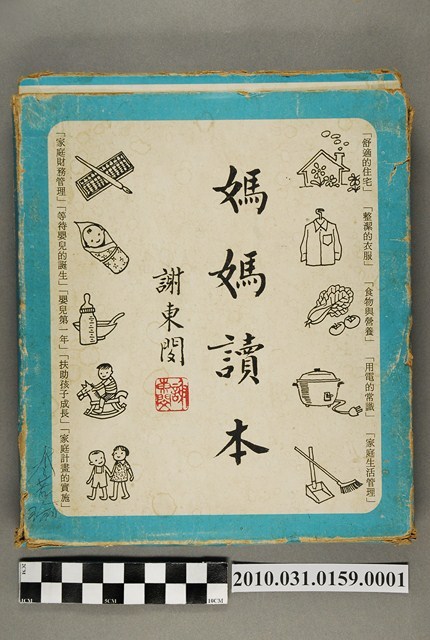 「舒適的住宅」「整潔的衣服」「食物與營養」「用電的常識」「家庭生活管理」
媽媽讀本
謝東閔
「家庭財務管理」「等待嬰兒的誕生」「嬰兒第一年」「扶助孩子成長」「家庭計畫的實施」
0CM 5CM 10CM
2010.031.0159.0001